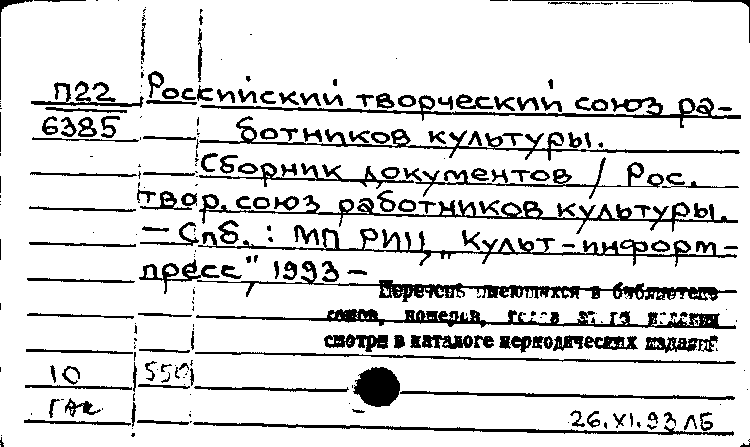 П22 Российский творческий союз ра-
6385 ботников культуры.
Сборник документов / Рос.
твор. союз работников культуры.
— Спб. : МП РИЦ „Культ-информ-
пресс", 1993 –
Перечень имеющихся в библиотеке
томов, номеров, годов этого издания
смотри в каталоге периодических изданий
10 550
ГАК
26.XI.93 ЛБ